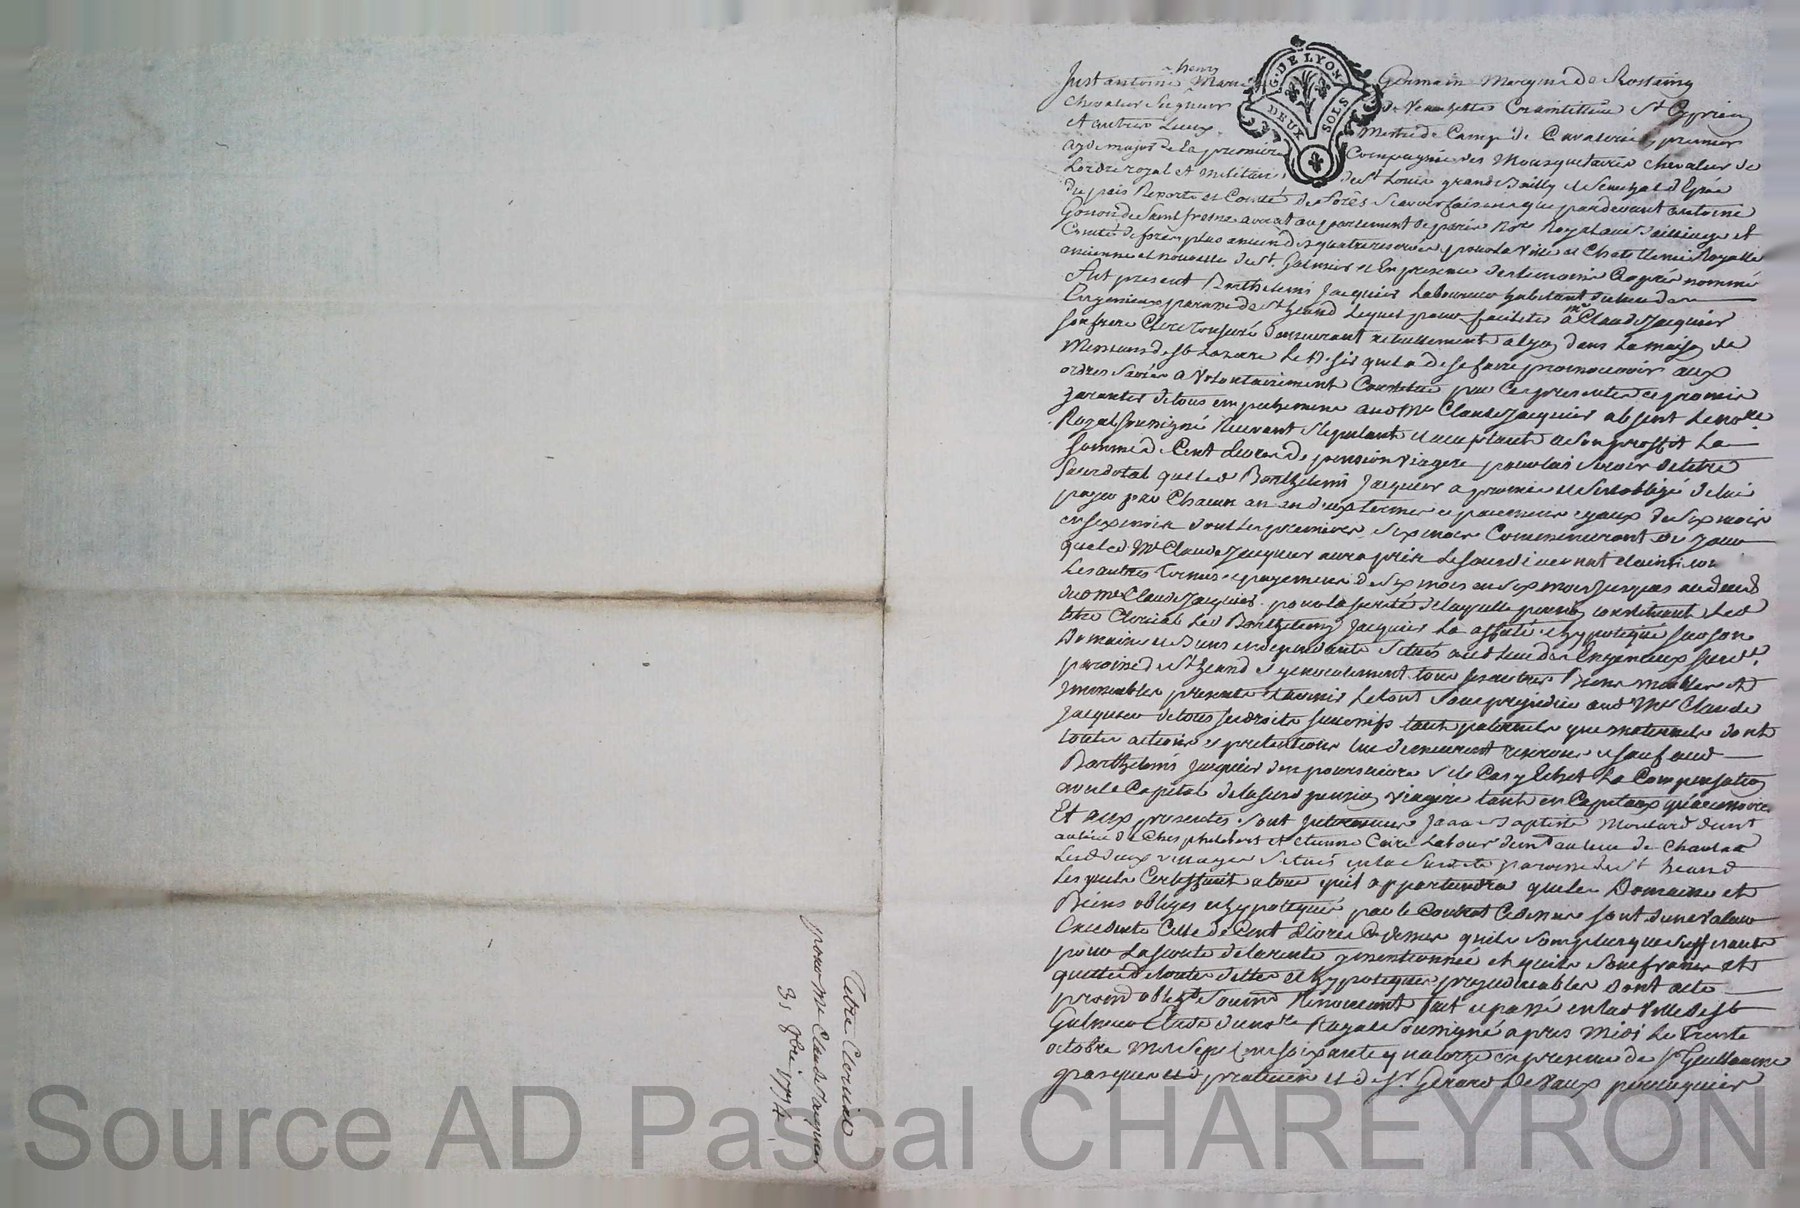 Just antoine henry Marie Germain Marquis de Rostaing
Chevalier Seigneur de Veauchettes Craintilleu St Cyprien
et autres Lieux, Mestre de Camp de Cavalerie, premier
ayde major de la premiere Compagnie des Mousquetaires Chevalier de
Lordre royal et militaire de St Louis grand Bailly et Senechal d'Epée
du païs Reporte et Comté de Forès Scavoir faisons que pardevant antoine
de Saint fresne avocat au parlement de paris nore Royal au Bailliage et
Comté de forès plus ancien des quatre reservés pour la Ville et Chatellenie Royalle
ancienne et nouvelle de St. Galmier et En presence des temoins Cy après nommés
fut present Barthelemi Jacquier Laboureur habitant du lieu de
Lingenieux paroisse de St heand Lequel pour faciliter a mre Claude Jacquier
son frere Clerc Tonsuré demeurant actuellement a Lyon dans La maison de
Messieurs de St Lazare Le Desir qu'il a de se faire promouvoir aux
ordres Sacrés a Volontairement Constitué par Ces presentes et promis
garantir de tous empechemens aud Mre Claude Jacquier absent Le nore
Royal soussigné Recevant Stipulant et acceptant a Son proffit La
somme de Cent Livres de pension viagere pour lui servir de titre
Sacerdotal que led Barthelemi Jacquier a promis et s'est obligé de lui
payer par Chacun an en deux termes et payemens egaux de six mois
en six mois dont les premiers six mois Commenceront du Jour
que led Mre Claude Jacquier aura pris Le sousdiaconat et ainsi
Les autres Termes et payemens de six mois en six mois jusques au deces
dud Mre Claude Jacquier. pour la sureté de laquelle pension constituant Led
titre Clerical Led Barthelemi Jacquier La assuté et hypotequé sur son
Domaine et Biens en dependants Situés aud Lieu de Lingenieux susd.
paroisse de St heand et generalement tous ses autres Biens meubles et
Immeubles presents et avenir Le tout Sans prejudice aud Mre Claude
Jacquier de tous ses droits successifs tant paternels que maternels dont
toutes actions et pretentions lui demeurent reservées et sauf aud
Barthelemi Jacquier d'en poursuivre s'il Cas y Echet La Compensation
avec le Capital de la susd pension viagere tant en Capitaux qu'accessoires
Et aux presentes sont Intervenus Jean Baptiste Moulard demt
au lieu de Chez philibert et Etienne Caire Labour demt au lieu de
Lesd deux villages Situés en la susdite paroisse de St heand
Lesquels Certiffient a tous qu'il appartiendra que les Domaine et
Biens obligés et hypotequés par le Contrat Cy dessus sont d'une valeur
Excedente Celle de Cent Livres Cy dessus qu'ils sont plus que suffisants
pour La sureté de la rente y mentionnée et qu'ils sont francs et
quittes de toutes dettes et hypoteques prejudiciables Dont acte
promd obligt soumd Renonceant fait et passé en lad Ville de St
Galmier Etude du nore Royal Soussigné apres Midi Le Trente
octobre Mil sept Cent soixante quatorze en presence de sr Guillaume
pasquier praticien et de Sr. Gerard Devaux perruquier
Titre Clerical
pour Mre Claude Jacquier
31 8bre 1774
G. DE LYON
DEUX SOLS
Source AD Pascal CHAREYRON